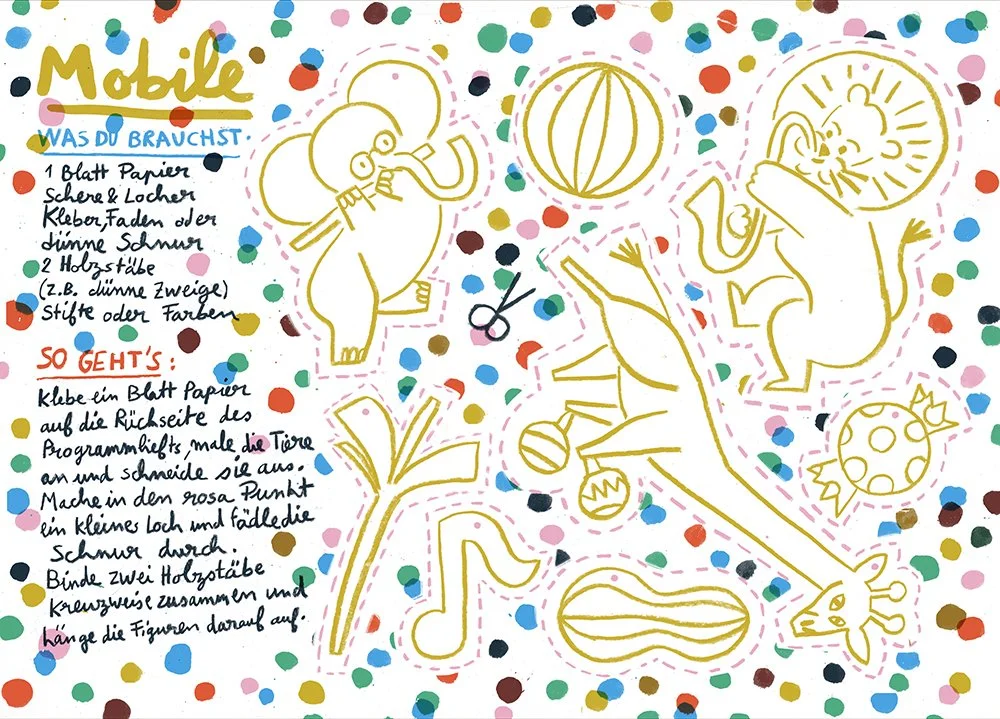 Mobile
WAS DU BRAUCHST.
1 Blatt Papier
Schere & Locher
Kleber, Faden oder
dünne Schnur
2 Holzstäbe
(z.B. dünne Zweige)
Stifte oder Farben
SO GEHT'S:
Klebe ein Blatt Papier
auf die Rückseite des
Programmhefts, male die Tiere
an und schneide sie aus.
Mache in den rosa Punkt
ein kleines Loch und fädle die
Schnur durch.
Binde zwei Holzstäbe
kreuzweise zusammen und
hänge die Figuren darauf auf.